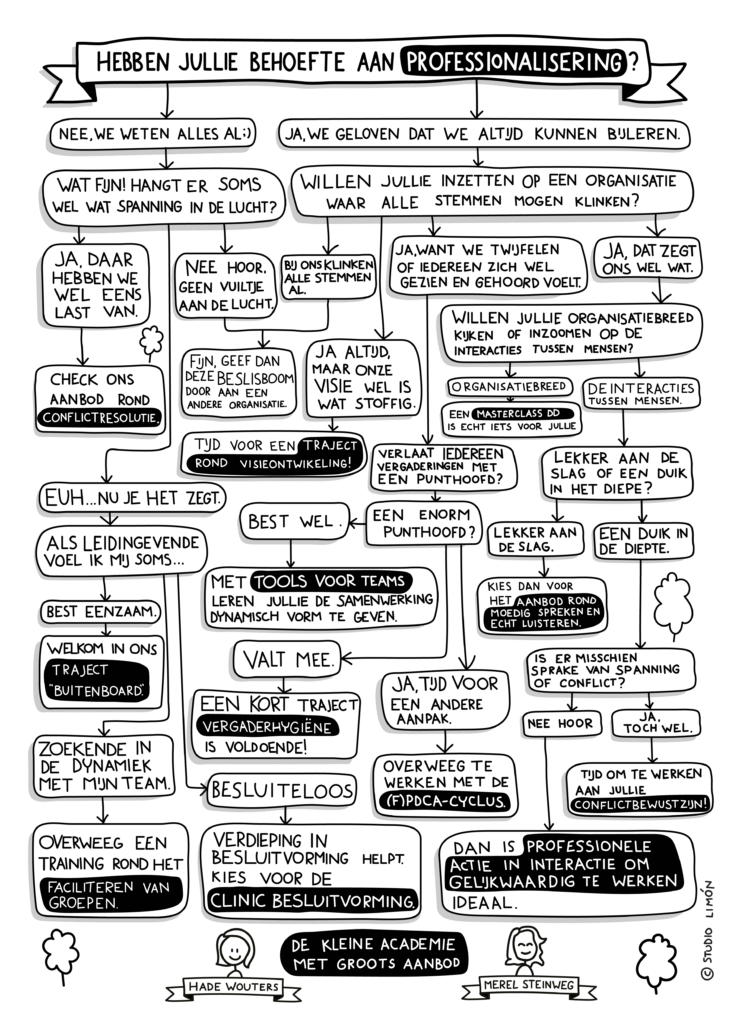 HEBBEN JULLIE BEHOEFTE AAN PROFESSIONALISERING?
NEE, WE WETEN ALLES AL ;)
JA, WE GELOVEN DAT WE ALTIJD KUNNEN BIJLEREN.
WAT FIJN! HANGT ER SOMS
WEL WAT SPANNING IN DE LUCHT?
WILLEN JULLIE INZETTEN OP EEN ORGANISATIE
WAAR ALLE STEMMEN MOGEN KLINKEN?
JA, DAAR
HEBBEN WE
WEL EENS
LAST VAN.
NEE HOOR,
GEEN VUILTJE
AAN DE LUCHT.
BIJ ONS KLINKEN
ALLE STEMMEN
AL.
JA, WANT WE TWIJFELEN
OF IEDEREEN ZICH WEL
GEZIEN EN GEHOORD VOELT.
JA, DAT ZEGT
ONS WEL WAT.
WILLEN JULLIE ORGANISATIEBREED
KIJKEN OF INZOOMEN OP DE
INTERACTIES TUSSEN MENSEN?
CHECK ONS
AANBOD ROND
CONFLICTRESOLUTIE.
FIJN, GEEF DAN
DEZE BESLISBOOM
DOOR AAN EEN
ANDERE ORGANISATIE.
JA ALTIJD,
MAAR ONZE
VISIE WEL IS
WAT STOFFIG.
ORGANISATIEBREED
EEN MASTERCLASS DD
IS ECHT IETS VOOR JULLIE
DE INTERACTIES
TUSSEN MENSEN.
TIJD VOOR EEN TRAJECT
ROND VISIEONTWIKELING!
VERLAAT IEDEREEN
VERGADERINGEN MET
EEN PUNTHOOFD?
LEKKER AAN DE
SLAG OF EEN DUIK
IN HET DIEPE?
EUH...NU JE HET ZEGT.
BEST WEL.
EEN ENORM
PUNTHOOFD?
LEKKER AAN
DE SLAG.
EEN DUIK IN
DE DIEPTE.
ALS LEIDINGEVENDE
VOEL IK MIJ SOMS...
MET TOOLS VOOR TEAMS
LEREN JULLIE DE SAMENWERKING
DYNAMISCH VORM TE GEVEN.
KIES DAN VOOR
HET AANBOD ROND
MOEDIG SPREKEN EN
ECHT LUISTEREN.
BEST EENZAAM.
WELKOM IN ONS
TRAJECT
"BUITENBOARD".
VALT MEE.
IS ER MISSCHIEN
SPRAKE VAN SPANNING
OF CONFLICT?
EEN KORT TRAJECT
VERGADERHYGIËNE
IS VOLDOENDE!
JA, TIJD VOOR
EEN ANDERE
AANPAK.
NEE HOOR
JA,
TOCH WEL.
ZOEKENDE IN
DE DYNAMIEK
MET MIJN TEAM.
BESLUITELOOS
OVERWEEG TE
WERKEN MET DE
(F)PDCA-CYCLUS.
TIJD OM TE WERKEN
AAN JULLIE
CONFLICTBEWUSTZIJN!
OVERWEEG EEN
TRAINING ROND HET
FACILITEREN VAN
GROEPEN.
VERDIEPING IN
BESLUITVORMING HELPT.
KIES VOOR DE
CLINIC BESLUITVORMING.
DAN IS PROFESSIONELE
ACTIE IN INTERACTIE OM
GELIJKWAARDIG TE WERKEN
IDEAAL.
DE KLEINE ACADEMIE
MET GROOTS AANBOD
HADE WOUTERS
MEREL STEINWEG
© STUDIO LIMÓN